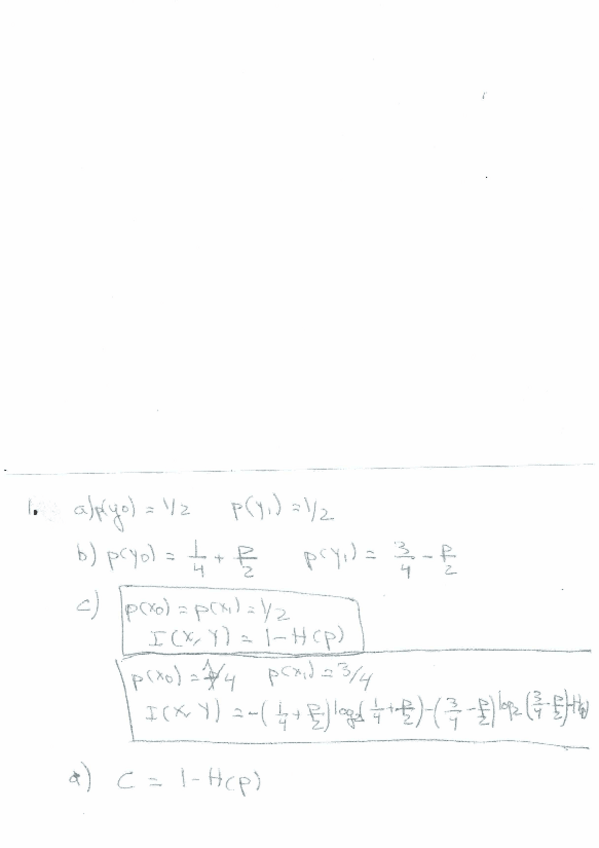 1. a) p(y0) = 1/2 p(y1) = 1/2
b) p(y0) = 1/4 + p/2 p(y1) = 3/4 - p/2
c) p(x0) = p(x1) = 1/2
I(X, Y) = 1 - H(p)
p(x0) = 1/4 p(x1) = 3/4
I(X, Y) = -(1/4 + p/2) log2(1/4 + p/2) - (3/4 - p/2) log2(3/4 - p/2) - H(p)
d) C = 1 - H(p)